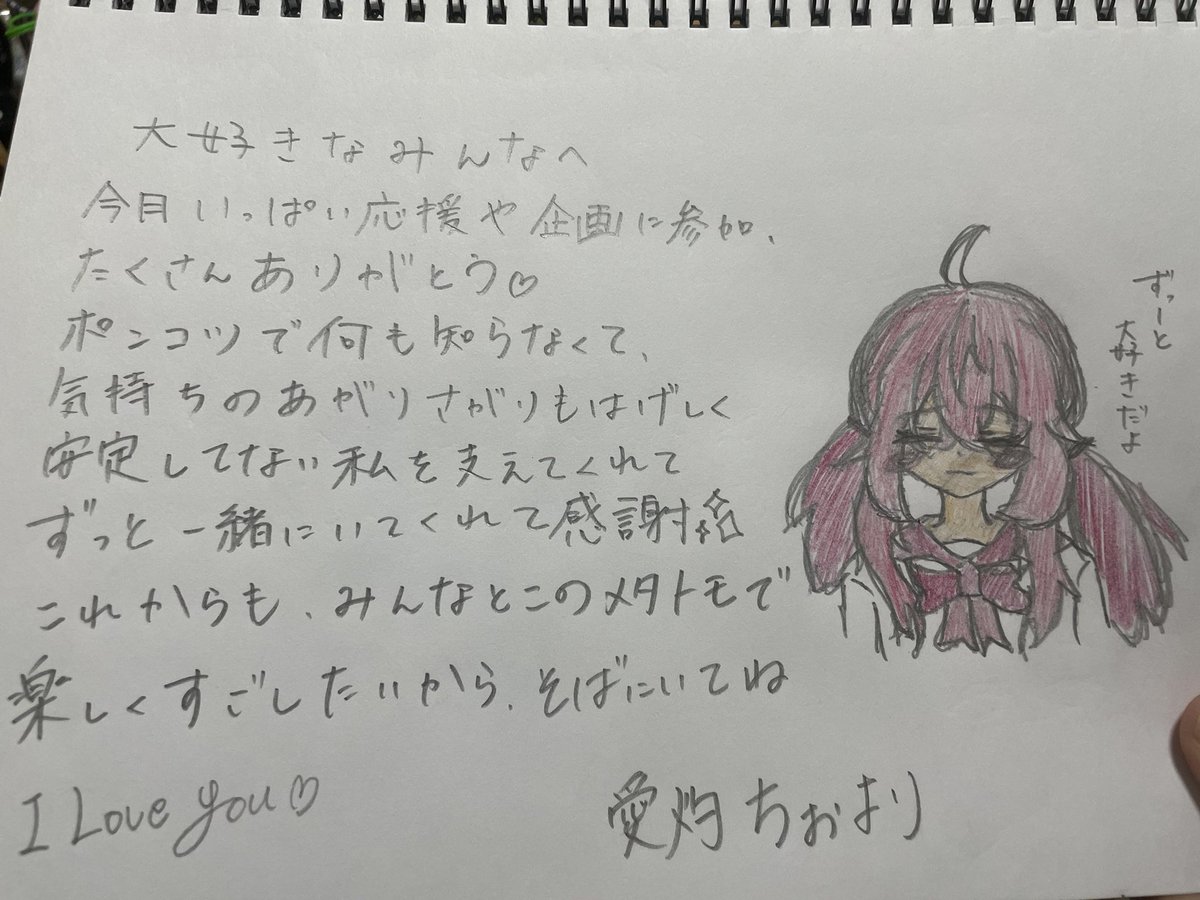 大好きなみんなへ
今月いっぱい応援や企画に参加、
たくさんありがとう♡
ポンコツで何も知らなくて、
気持ちのあがりさがりもはげしく
安定してない私を支えてくれて
ずっと一緒にいてくれて感謝
これからも、みんなとこのメタトモで
楽しくすごしたいから、そばにいてね
I Love you♡
愛灼ちおはり
ずーっと
大好きだよ